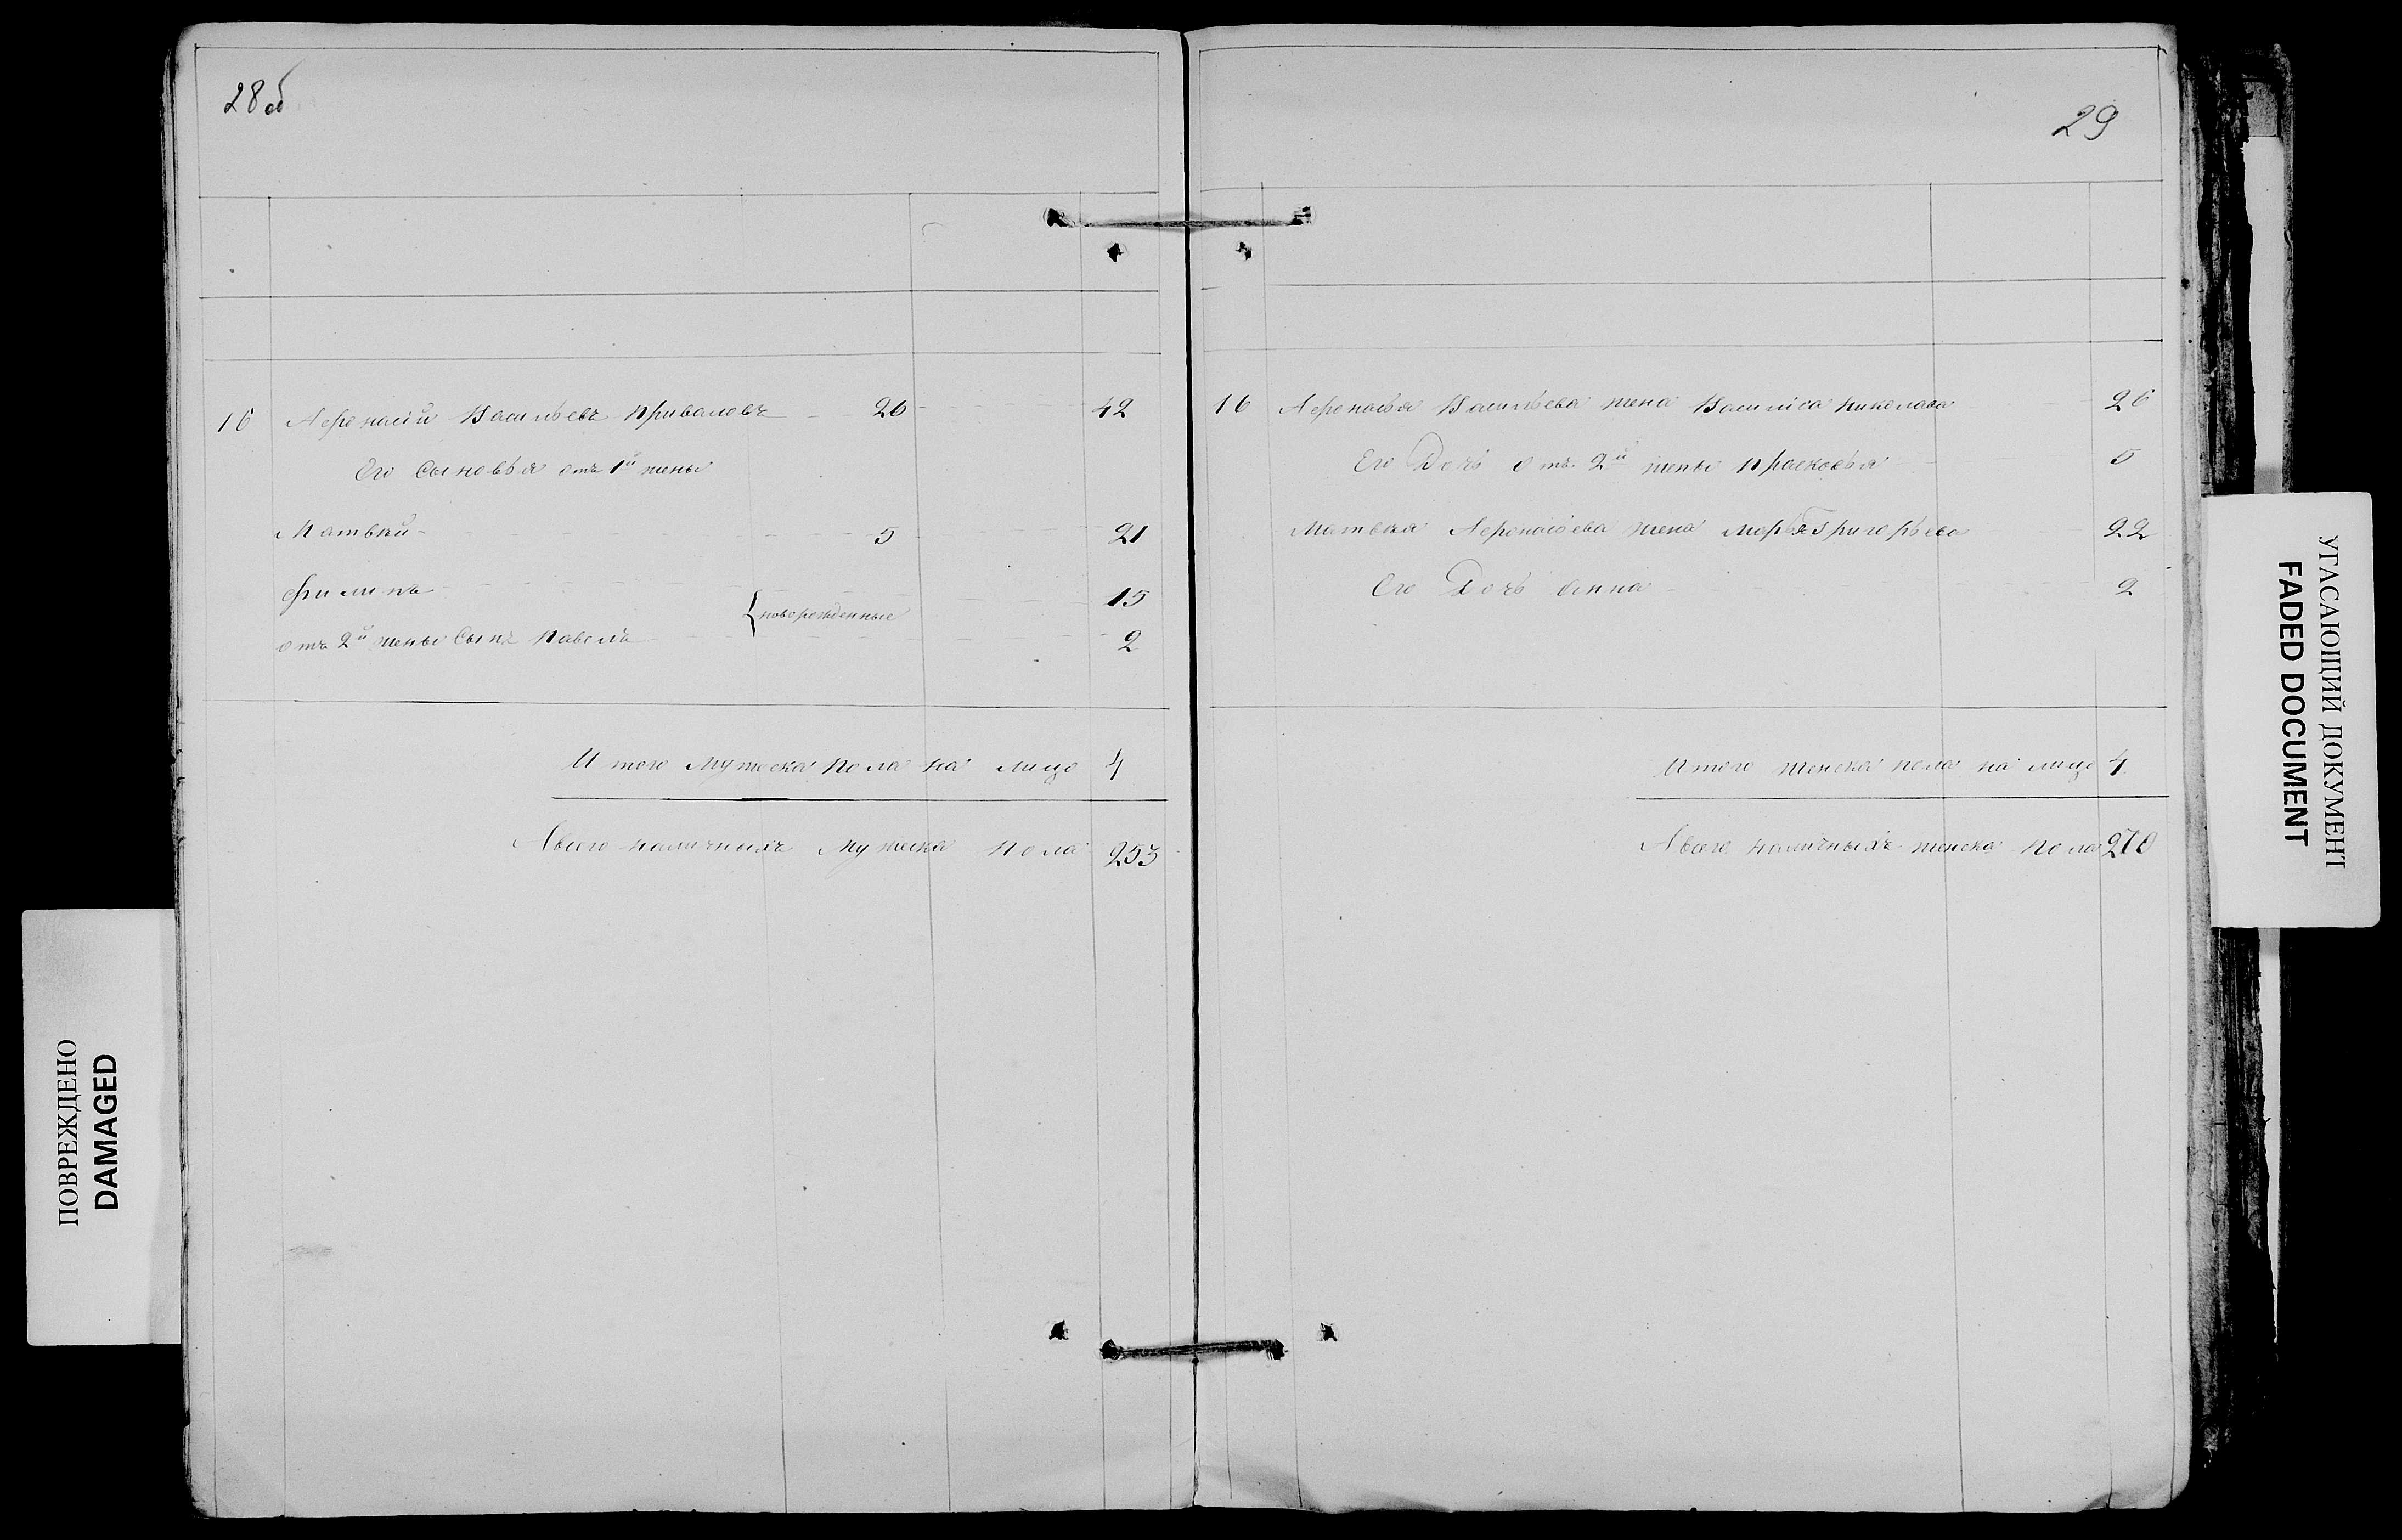 28об
16 Аѳонасій Васильевъ Приваловъ 26 42
Его Сыновья отъ 1й жены
Матвѣй 5 21
Филипъ 15
новорожденные
отъ 2й жены Сынъ Павелъ 2
Итого мужеска пола на лицо 4
А всего наличныхъ мужеска пола 253
29
16 Аѳонасья Васильева жена Василиса Николаева 26
Его Дочь отъ 2й жены Прасковья 5
Матвея Аѳонасьева жена Марья Григорьева 22
Его Дочь Анна 2
Итого женска пола на лицо 4
А всего наличныхъ женска пола 270
ПОВРЕЖДЕНО
DAMAGED
УГАСАЮЩИЙ ДОКУМЕНТ
FADED DOCUMENT